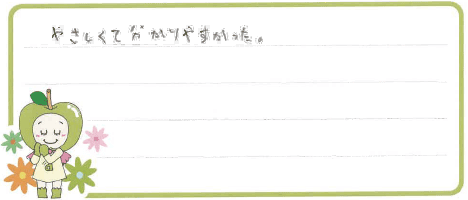 やさしくて分かりやすかった。